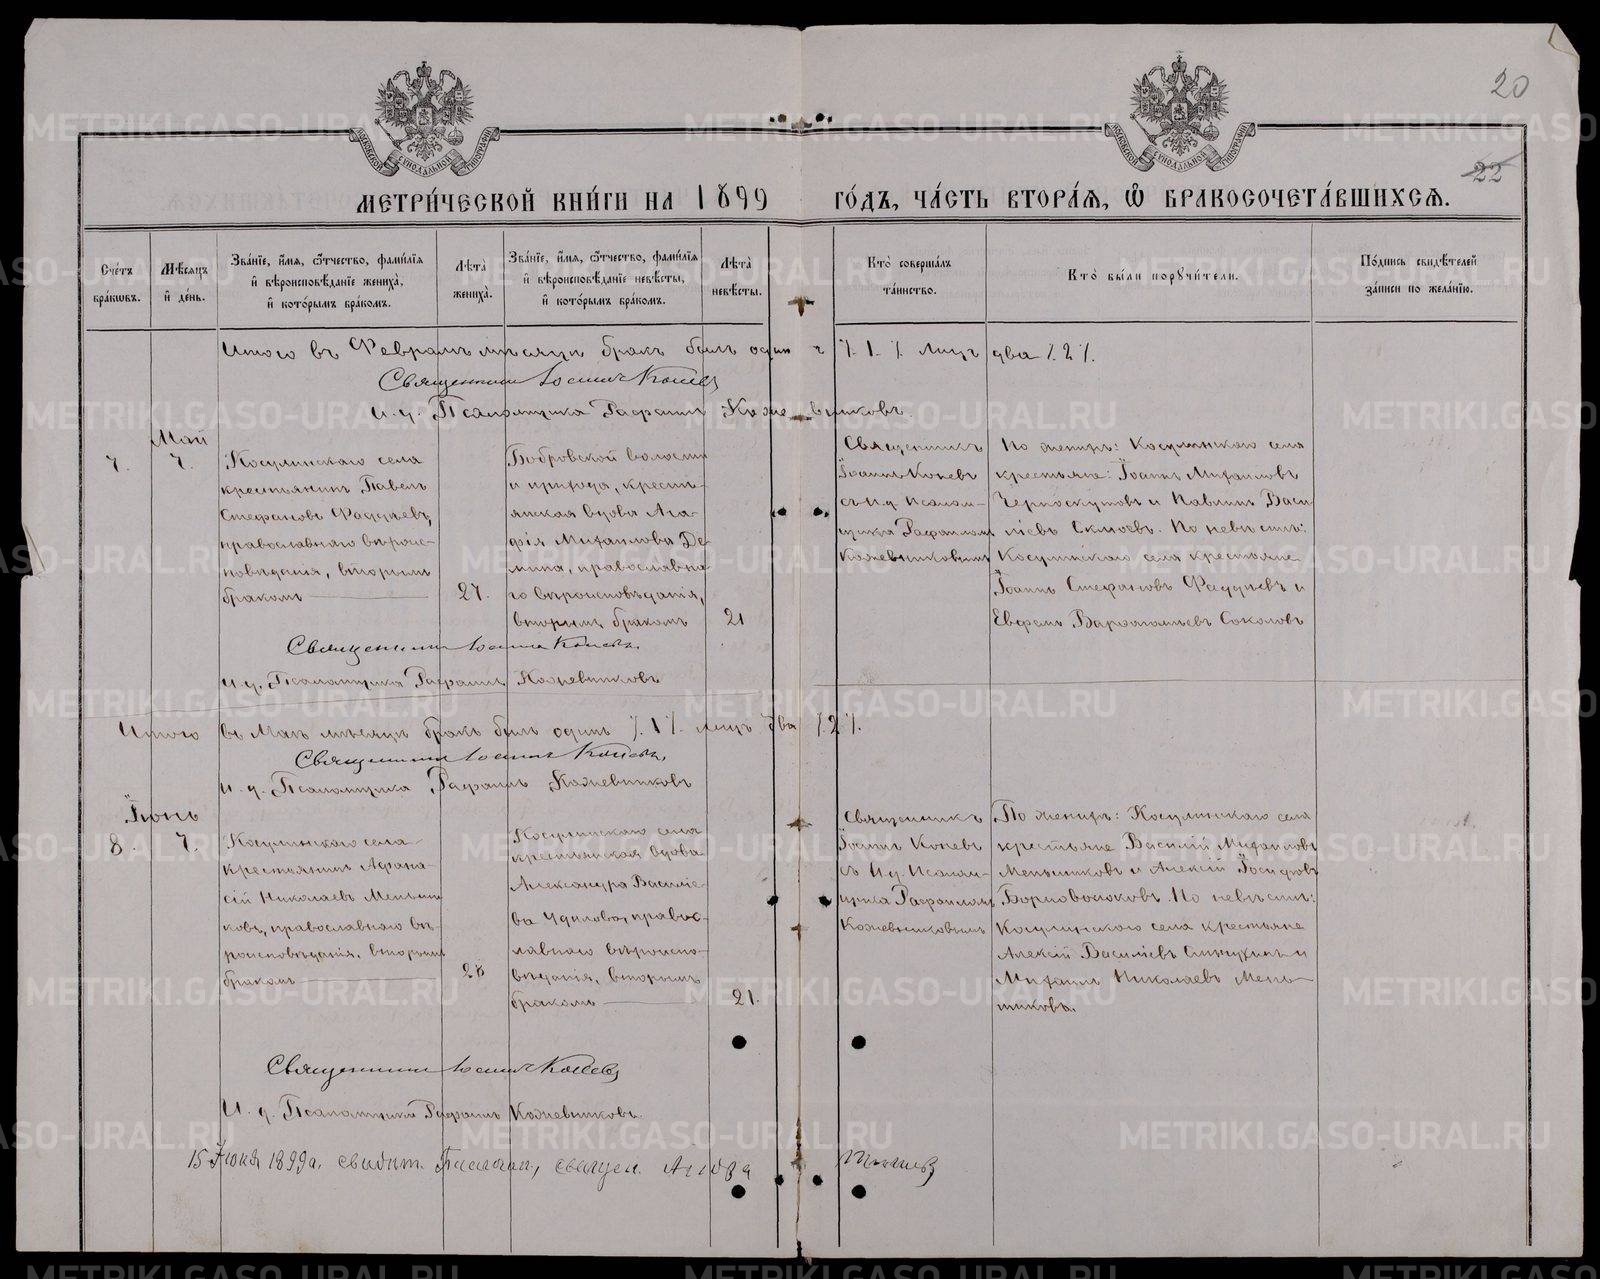 20
22
МЕТРИ́ЧЕСКОЙ КНИ́ГИ НА 1899 ГО́ДЪ, ЧА́СТЬ ВТОРА́Я, Ѿ БРАКОСОЧЕТА́ВШИХСЯ.
Сче́тъ бра́ковъ.
Мѣ́сяцъ и҆ де́нь.
Зва́нїе, и҆́мя, ѻ҆́тчество, фами́лїя и҆ вѣроисповѣ́данїе жениха̀, и҆ кото́рымъ бра́комъ.
Лѣта̀ жениха̀.
Зва́нїе, и҆́мя, ѻ҆́тчество, фами́лїя и҆ вѣроисповѣ́данїе невѣ́сты, и҆ кото́рымъ бра́комъ.
Лѣта̀ невѣ́сты.
Кто̀ соверша́лъ та́инство.
Кто̀ бы́ли порꙋчи́тели.
По́дпись свидѣ́телей за́писи по жела́нїю.
Итого въ Февралѣ мѣсяцѣ бракъ былъ одинъ /.1./. лицъ два /.2./.
Священникъ Іоаннъ Коневъ
И. д. Псаломщика Рафаилъ Кожевниковъ.
Май
7. 7.
Косулинскаго села
крестьянинъ Павелъ
Стефановъ Фаддѣевъ,
православнаго вѣроис-
повѣданія, вторымъ
бракомъ
27.
Бобровской волости
и прихода, кресть-
янская вдова Ага-
фія Михаилова Де-
мина, православна-
го вѣроисповѣданія,
вторымъ бракомъ
21
Священникъ
Іоаннъ Коневъ
съ И.д. псалом-
щика Рафаиломъ
Кожевниковымъ
По женихѣ: Косулинскаго села
крестьяне: Іоаннъ Михаиловъ
Черноскутовъ и Павлинъ Васи
ліевъ. По невѣстѣ:
Косулинскаго села крестьяне
Іоаннъ Стефановъ Фаддѣевъ и
Евфремъ Варфоломѣевъ Соколовъ
Священникъ Іоаннъ Коневъ.
И. д. Псаломщика Рафаилъ Кожевниковъ
Итого въ Маѣ мѣсяцѣ бракъ былъ одинъ /.1./. лицъ два /.2./.
Священникъ Іоаннъ Коневъ.
И. д. Псаломщика Рафаилъ Кожевниковъ
Іюнь
8. 7.
Косулинскаго села
крестьянинъ Афана-
сій Николаевъ Меньши
ковъ, православнаго вѣ-
роисповѣданія, вторымъ
бракомъ
28
Косулинскаго села
крестьянская вдова
Александра Василіе-
ва, правос-
лавнаго вѣроиспо-
вѣданія, вторымъ
бракомъ
21.
Священникъ
Іоаннъ Коневъ
съ И.д. Псалом-
щика Рафаиломъ
Кожевниковымъ
По женихѣ: Косулинскаго села
крестьяне Василій Михаиловъ
Меньшиковъ и Алексій Іосифовъ
По невѣстѣ:
Косулинскаго села крестьяне
Алексій Василіевъ и
Михаилъ Николаевъ Мень-
шиковъ.
Священникъ Іоаннъ Коневъ
И. д. Псаломщика Рафаилъ Кожевниковъ.
15 Іюня 1899 г. свидѣт. свящ.
METRIKI.GASO-URAL.RU